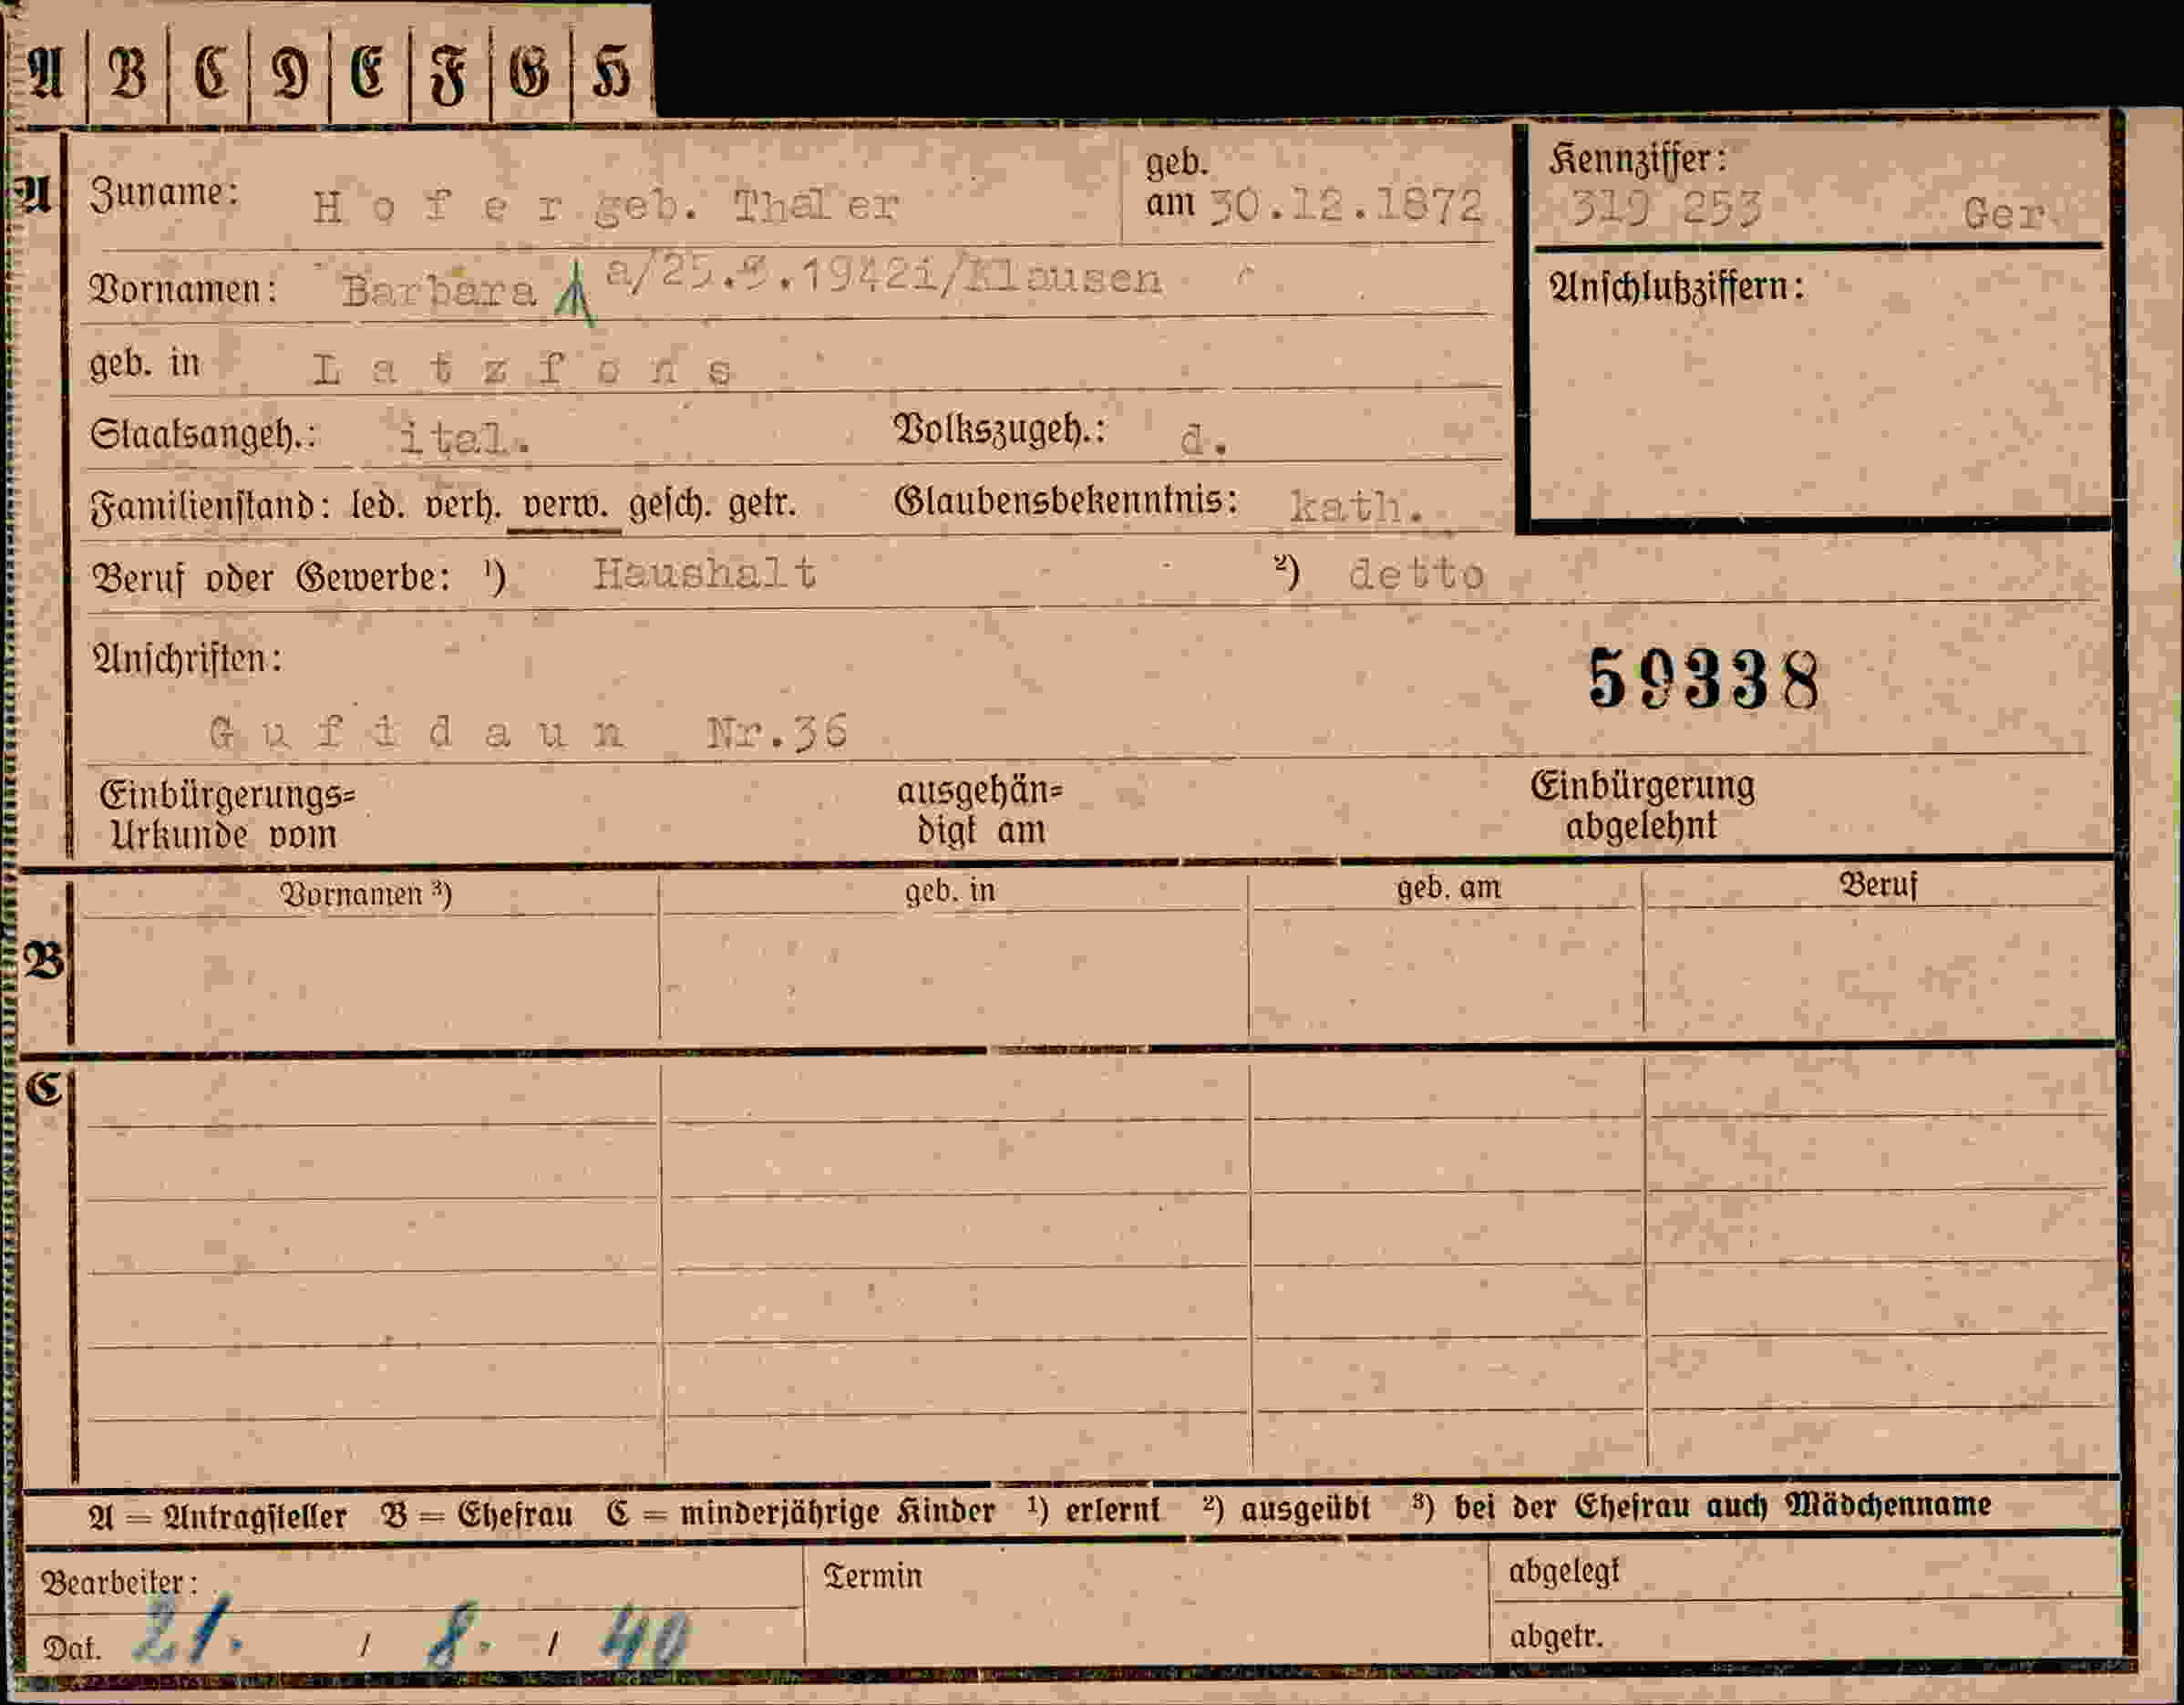 A B C D E F G H
A
Zuname: Hofer geb. Thaler
geb. am 30.12.1872
Kennziffer:
319 253 Ger
Vornamen: Barbara a/25.5.1942i/Klausen
Anschlußziffern:
geb. in Latzfons
Staatsangeh.: ital. Volkszugeh.: d.
Familienstand: led. verh. verw. gesch. getr. Glaubensbekenntnis: kath.
Beruf oder Gewerbe: ¹) Haushalt ²) detto
Anschriften:
59338
Gufidaun Nr.36
Einbürgerungs= ausgehän= Einbürgerung
Urkunde vom digt am abgelehnt
Vornamen ³) geb. in geb. am Beruf
B
C
A = Antragsteller B = Ehefrau C = minderjährige Kinder ¹) erlernt ²) ausgeübt ³) bei der Ehefrau auch Mädchenname
Bearbeiter: Termin abgelegt
Dat. 21. / 8. / 40 abgetr.